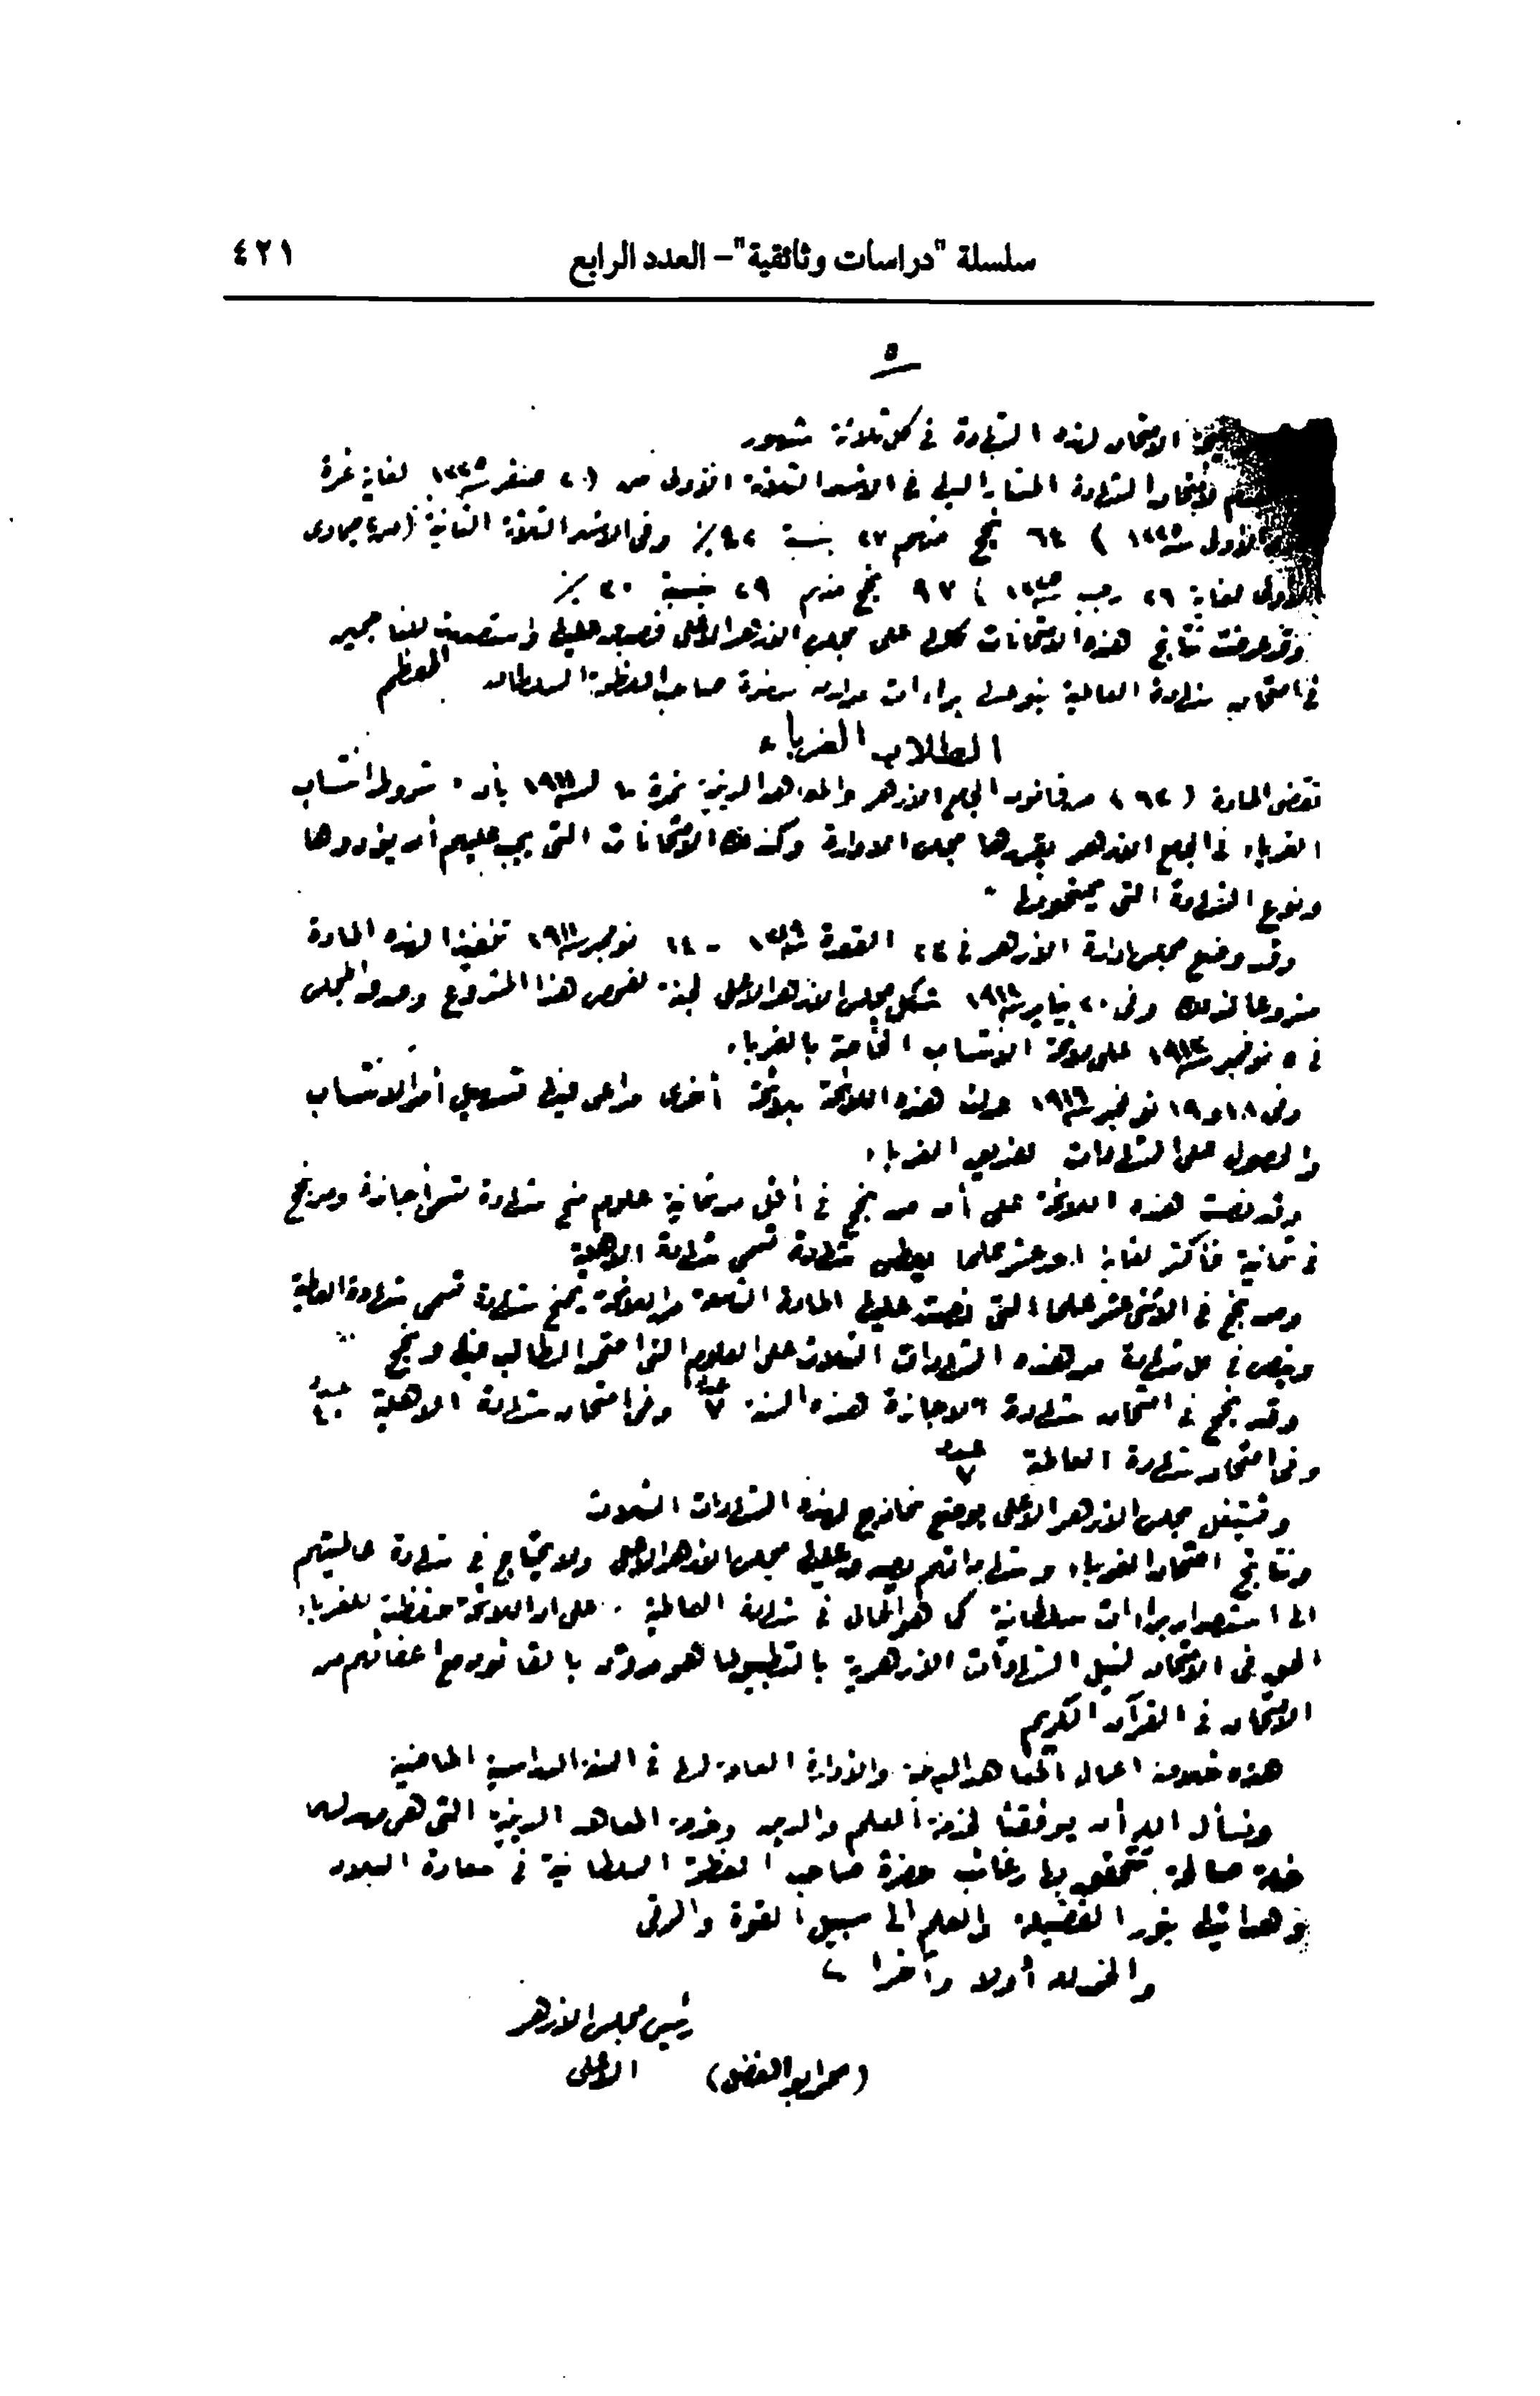 سلسلة "دراسات وثائقية"- العدد الرابع ٤٢١
٥
الامتحان لهذه الشهادة في كل ثلاثة شهور
لامتحان الشهادة المشار اليها في الاشهر الثلاثة الاولى من (٢٠ صفر سنة لغاية غرة
الاولى سنة ) ٦٤ نجح منهم ٢٧ بنسبة ٤٢٪ وفى الاشهر الثلاثة الثانية (من جمادى
الاولى لغاية ٢٦ رجب سنة ) ٩٧ نجح منهم ٢٩ بنسبة ٣٠٪
وقد عرضت نتائج هذه الامتحانات كلها على مجلس الازهر الاعلى فصدق عليها واستصدرت للناجحين
في امتحان شهادة العالمية بنوعيها براءات عرايه حضرة صاحب العظمة السلطان المعظم
الطلاب الغرباء
تقضى المادة (٦٢) من قانون الجامع الازهر والمعاهد الدينية نمرة ١٠ لسنة ١٩١١ بأن شروط انتساب
الغرباء في الجامع الازهر يقررها مجلس الادارة وكذلك الامتحانات التى يجب عليهم أن يؤدوها
ونوع الشهادة التى يمنحونها
وقد وضع مجلس ادارة الازهر في ٢٢ القعدة سنة ١٣٢٩ - ١٤ نوفمبر سنة ١٩١١ تنفيذا لهذه المادة
مشروعا لذلك وفى ٢٠ يناير سنة شكل مجلس الازهر الاعلى لجنة لفحص هذا المشروع وصدق المجلس
في ٥ نوفمبر سنة على لائحة الانتساب الخاصة بالغرباء
وفى ١٨ و١٩ نوفمبر سنة ١٩١٦ عدلت هذه اللائحة بلائحة أخرى مراعى فيها تسهيل أمر الانتساب
والحصول على الشهادات لفريق الغرباء
وقد نصت هذه اللائحة على أن من نجح في أقل من ثمانية علوم منح شهادة تسمى اجازة ومن نجح
في ثمانية فأكثر لغاية احد عشر علما يعطى شهادة تسمى شهادة الاهلية
ومن نجح في الاثنى عشر علما التى نصت عليها المادة التاسعة من اللائحة يمنح شهادة تسمى شهادة العالمية
وينص في كل شهادة من هذه الشهادات الثلاث على العلوم التى امتحن الطالب فيها ونجح
وقد نجح في امتحان شهادة الاجازة هذه السنة عدد ٧ وفى امتحان شهادة الاهلية عدد ٤٠
وفى امتحان شهادة العالمية عدد ٧
ويشتغل مجلس الازهر الاعلى بوضع نماذج لهذه الشهادات الثلاث
ونتائج امتحان الغرباء وشهاداتهم يصدق عليها مجلس الازهر الاعلى ولا يحتاج في شهادة عالميتهم
الى استصدار براءات سلطانية كما هو الحال في شهادة العالمية . على ان اللائحة حفظت للغرباء
الحق في الامتحان لنيل الشهادات الازهرية بالتطبيق لما هو مدون بالقانون مع اعفائهم من
الامتحان في القرآن الكريم
هذه خلاصة اعمال المعاهد الدينية والادارة العامة لها في السنة الدراسية الماضية
ونسأل الله أن يوفقنا لخدمة العلم والدين وخدمة المعاهد الدينية التى هى مهد لهما
خدمة صالحة تتحقق بها رغائب حضرة صاحب العظمة السلطانية في سعادة البلاد
وهدايتها بنور الفضيلة والعلم الى سبيل القوة والرقى
والحمد لله أولا وآخرا
رئيس مجلس الازهر
(محمد ابو الفضل) الاعلى